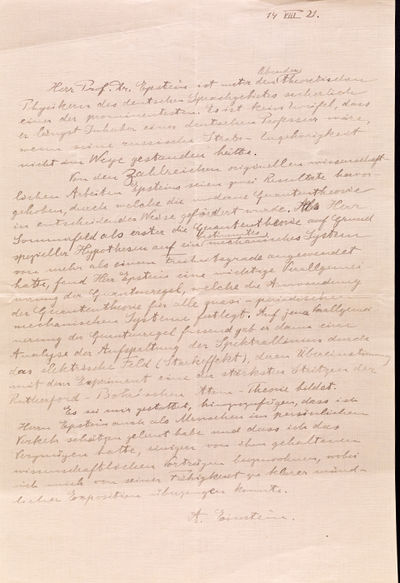 14 VIII 21.
Herr Prof. Dr. Epstein ist unter den lebenden theoretischen
Physikern des deutschen Sprachgebietes sicherlich
einer der prominentesten. Es ist kein Zweifel, dass
er längst Inhaber einer deutschen Professur wäre,
wenn seine russische Staats-Angehörigkeit
nicht im Wege gestanden hätte.
Von den zahlreichen originellen wissenschaft-
lichen Arbeiten Epsteins seien zwei Resultate hervor-
gehoben, durch welche die moderne Quantentheorie
in entscheidender Weise gefördert wurde. Herr
Sommerfeld als erster die Quantentheorie auf Grund
spezieller Hypothesen auf ein bestimmtes mechanisches System
von mehr als einem Freiheitsgrade angewendet
hatte, fand Herr Epstein eine wichtige Verallgemei-
nerung der Quantenregel, welche die Anwendung
der Quantentheorie für alle quasi-periodischen
mechanischen Systeme festlegt. Auf jene Verallgemei-
nerung der Quantenregel fussend gab er dann eine
Analyse der Aufspaltung der Spektrallinien durch
das elektrische Feld (Starkeffekt), deren Übereinstimmung
mit dem Experiment eine der stärksten Stützen der
Rutherford-Bohr'schen Atom-Theorie bildet.
Es sei mir gestattet, hinzuzufügen, dass ich
Herrn Epstein auch als Menschen im persönlichen
Verkehr schätzen gelernt habe und dass ich das
Vergnügen hatte, einigen von ihm gehaltenen
wissenschaftlichen Vorträgen beizuwohnen, wobei
ich mich von seiner Fähigkeit zu klarer münd-
licher Exposition überzeugen konnte.
A. Einstein.